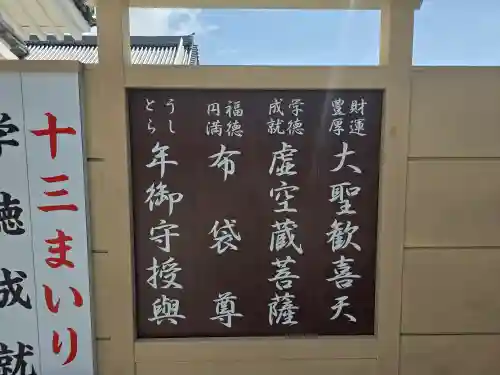 財運
豊厚
大聖歓喜天
学徳
成就
虚空蔵菩薩
福徳
円満
布袋尊
うし
とら
年御守授与
十三まいり
学徳成就